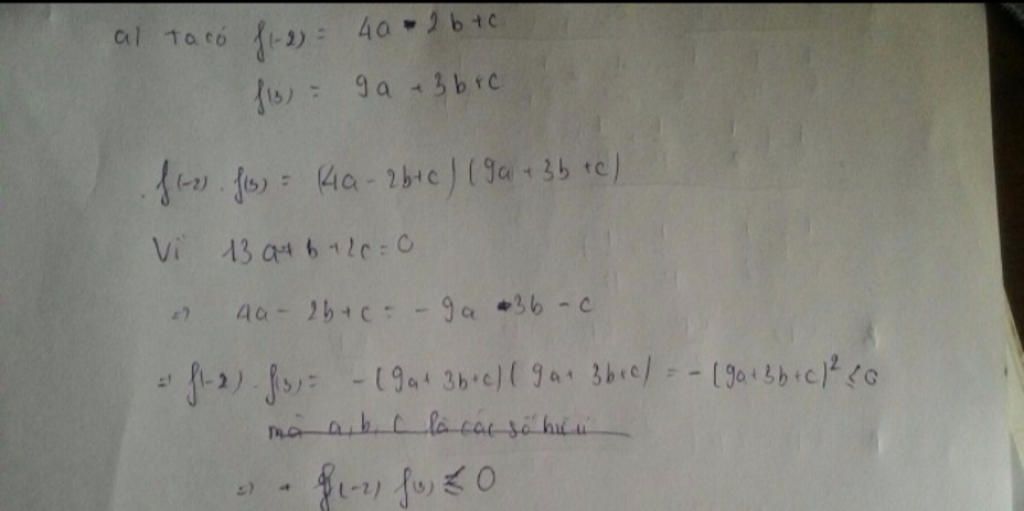 a) Ta có f(-2) = 4a - 2b + c
f(3) = 9a + 3b + c
f(-2) . f(3) = (4a - 2b + c) (9a + 3b + c)
Vì 13a + b + 2c = 0
=> 4a - 2b + c = - 9a - 3b - c
=> f(-2) . f(3) = - (9a + 3b + c) (9a + 3b + c) = - (9a + 3b + c)² ≤ 0
mà a, b, c là các số hữu
=> f(-2) f(3) ≤ 0